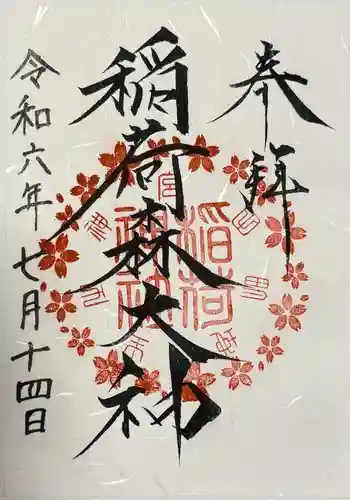 奉拝
稲荷森大神
令和六年七月十四日